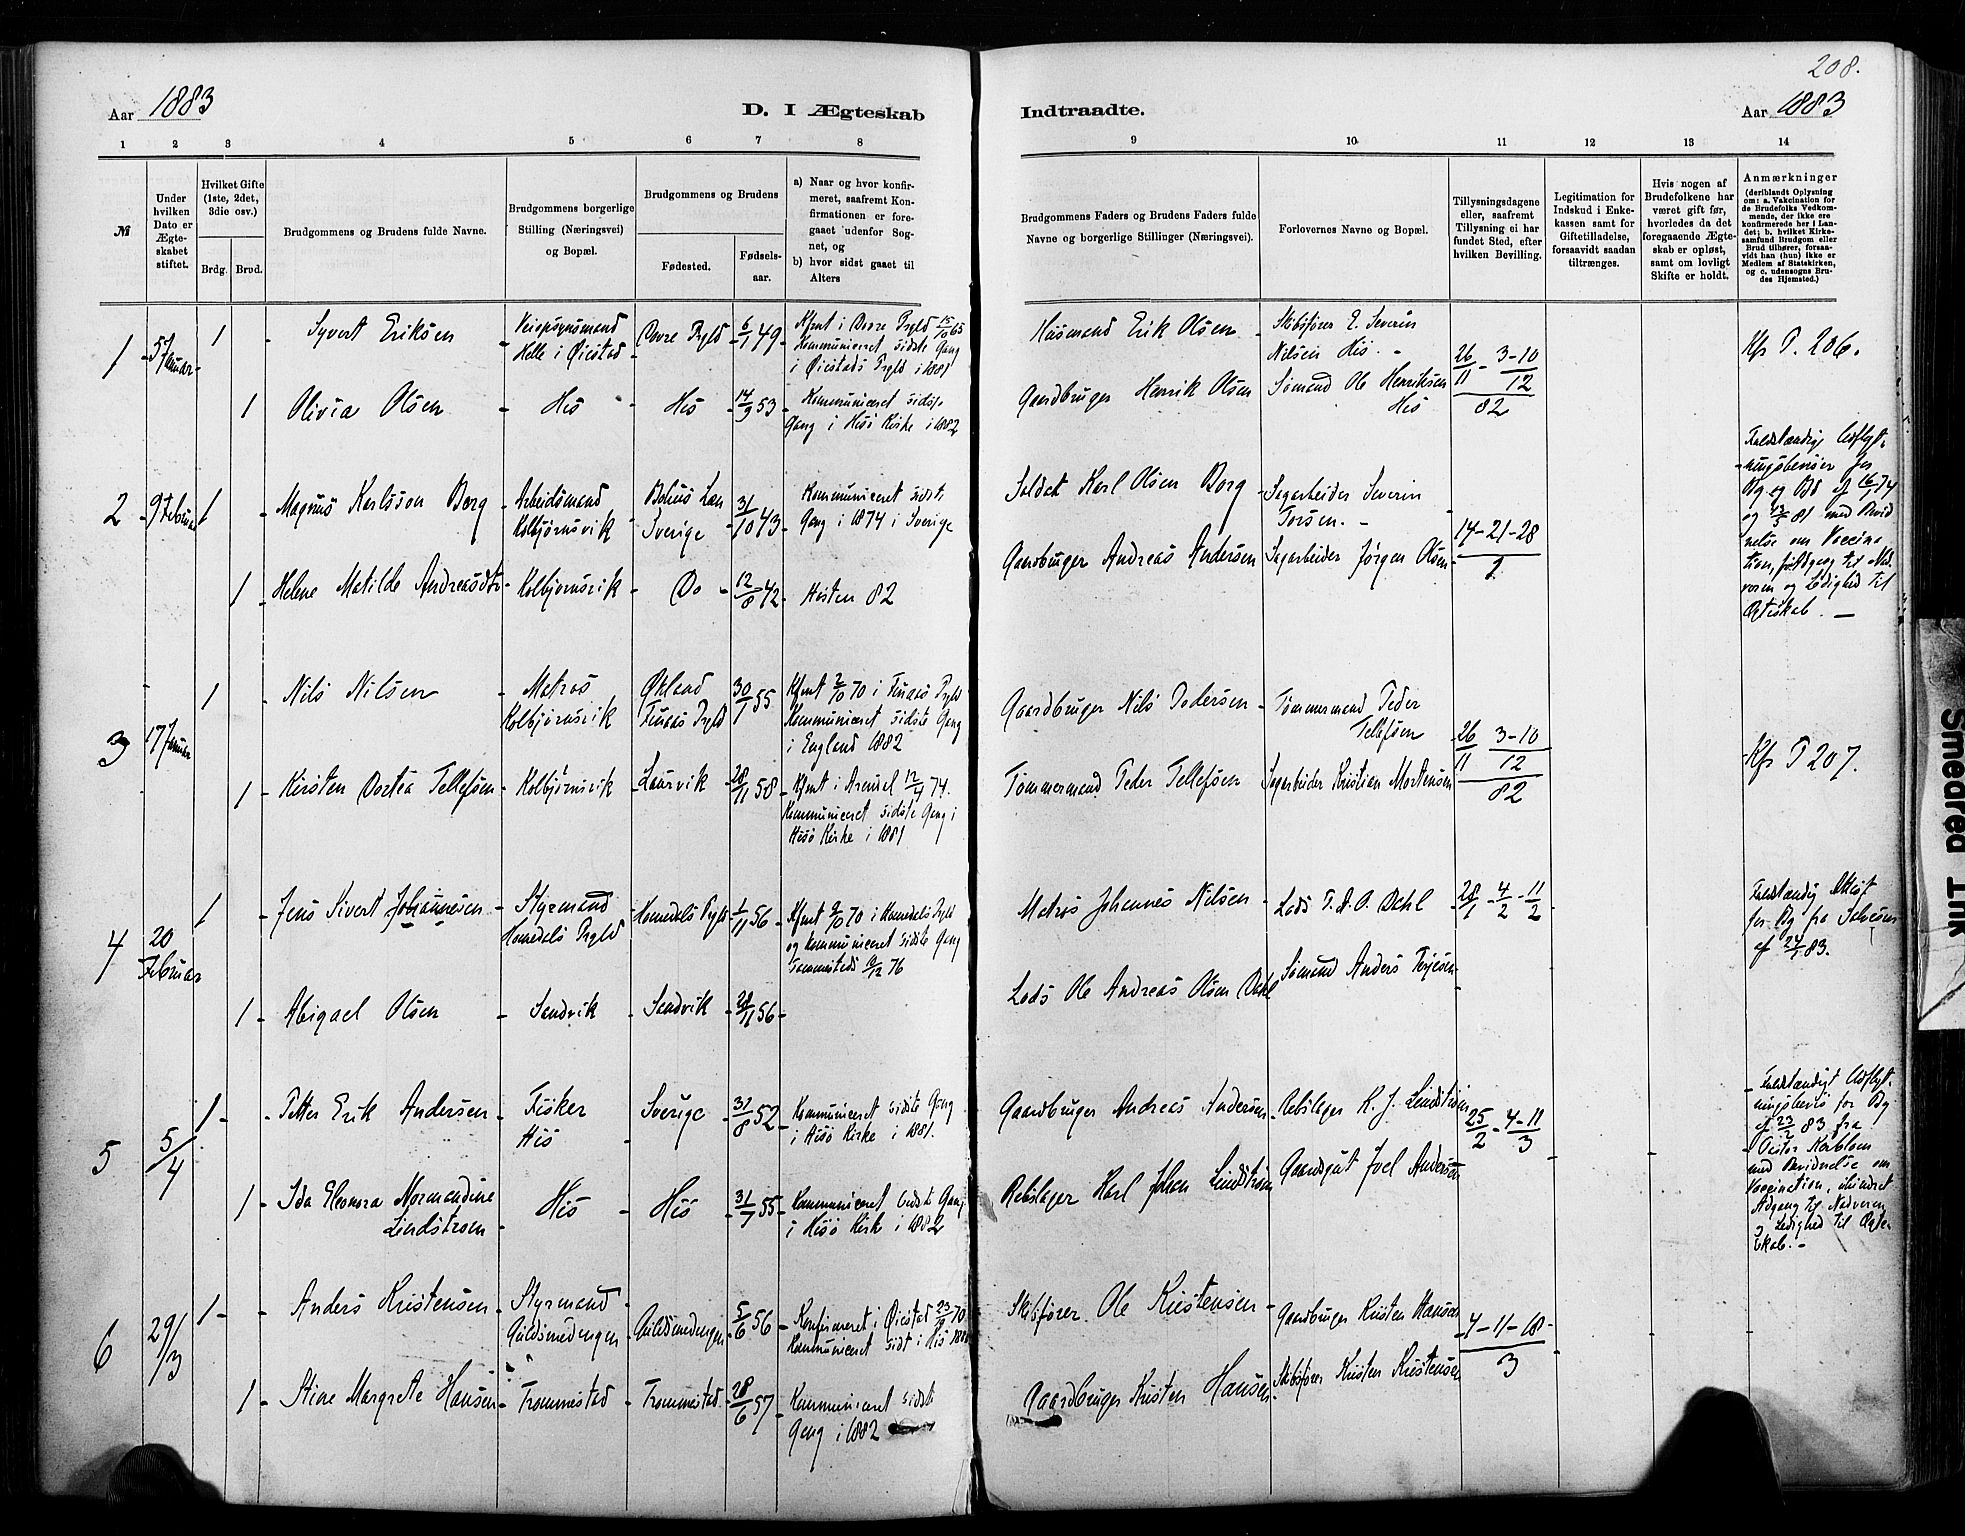 208.
Aar 1883
D. I Ægteskab
Indtraadte.
Aar 1883
1 2 3 4 5 6 7 8
9 10 11 12 13 14
№
Under hvilken Dato er Ægteskabet stiftet.
Hvilket Gifte (1ste, 2det, 3die osv.)
Brdg. Brud.
Brudgommens og Brudens fulde Navne.
Brudgommens borgerlige Stilling (Næringsvei) og Bopæl.
Brudgommens og Brudens
Fødested.
Fødsels-aar.
a) Naar og hvor konfirmeret, saafremt Konfirmationen er foregaaet udenfor Sognet, og
b) hvor sidst gaaet til Alters
Brudgommens Faders og Brudens Faders fulde Navne og borgerlige Stillinger (Næringsvei).
Forlovernes Navne og Bopæl.
Tillysningsdagene eller, saafremt Tillysning ei har fundet Sted, efter hvilken Bevilling.
Legitimation for Indskud i Enkekassen samt for Giftetilladelse, forsaavidt saadan tiltrænges.
Hvis nogen af Brudefolkene har været gift før, hvorledes da det foregaaende Ægteskab er opløst, samt om lovligt Skifte er holdt.
Anmærkninger (deriblandt Oplysning om: a. Vakcination for de Brudefolks Vedkommende, der ikke ere konfirmerede her i Landet; b. hvilket Kirkesamfund Brudgom eller Brud tilhører, forsaavidt han (hun) ikke er Medlem af Statskirken, og c. udensogns Brudes Hjemsted.)
1 5 Januar 1 Syvert Eriksen
Helle i Øiestad
Dovre Pgld 6/1 49
Kfmt i Dovre Pgld 15/10 65
Kommuniceret sidste Gang
i Øiestads Pgld i 1881
Husmand Erik Olsen
Skibsfører E. Severin
Nilsen His.
26/11 - 3-10/12
82
Kfr P. 206.
1 Olivia Olsen His His 14/9 53
Kommuniceret sidste
Gang i Hisø Kirke i 1882
Gaardbruger Henrik Olsen
Sømand Ole Henriksen
His
2 9 Februar 1 Magnus Karlsson Borg
Arbeidsmand
Kolbjørnsvik
Bohus Län
Sverige
31/10 43
Kommuniceret sidste
Gang i 1874 i Sverige
Soldat Karl Olsen Borg
Sagarbeider Severin
Torsen.
14-21-28
1
Fuldstændige Udflyt-
ningsbeviser for
Bg og Bd af 16/1 74
og 13/5 81 med Bevid
nelse om Vaccina
tion,
og Ledighed til
Ægteskab.
1 Helene Matilde Andreasdtr Kolbjørnsvik Do 12/8 42
Høsten 82
Gaardbruger Andreas Andersen
Sagarbeider Jørgen Olsen
3 17 Januar 1 Nils Nilsen
Matros
Kolbjørnsvik
30/1 55
Kfmt 2/10 70 i
Kommuniceret sidste Gang
i England 1882
Gaardbruger Nils Pedersen
Tømmermand Peder
Tellefsen
26/11 3-10/12
82
Kfr P 207.
1 Kirsten Dortea Tellefsen Kolbjørnsvik Laurvik 28/11 58
Kfmt i Arendal 12/4 74.
Kommuniceret sidste Gang i
Hisø Kirke i 1881
Tømmermand Peder Tellefsen
Sagarbeider Kristian Mortensen
4 20 Februar 1 Jens Sivert Johannesen
Styrmand
Homedals Pgld
Homedals Pgld 1/11 56
Kfmt 2/10 70 i Homedals Pgld
og Kommuniceret sidste Gang
sammesteds 10/12 76
Matros Johannes Nilsen
Lods T. A. O. Dahl
28/1 - 4/2 - 11/2
Fuldstændig Attest
for Bg fra
af 24/1 83.
1 Abigael Olsen Sandvik Sandvik 56
Lods Ole Andreas Olsen Dahl
Sømand Anders Terjesen
5 5/4 1 Petter Erik Andersen
Fisker
His
Sverige 31/8 52
Kommuniceret sidste Gang
i Hisø Kirke i 1881.
Gaardbruger Andreas Andersen
Rebslager K. J. Lindstrøm
25/2 - 4-11/3
Fuldstændigt Udflyt-
ningsbevis for Bg
af 23/2 83 fra
med Bevidnelse om
Vaccination, uhindret
Adgang til Nadveren
og Ledighed til Ægte-
skab.
1 Ida Eleonora Normandine
Lindstrøm
His His 31/7 55
Kommuniceret sidste Gang
i Hisø Kirke i 1882
Rebslager Karl Johan Lindstrøm
Gaardgut Joel Andersen
6 29/3 1 Anders Kristensen
Styrmand
Guldsmedengen
Guldsmedengen 5/6 56
Konfirmeret i Øiestad 23/9 70
Kommuniceret sidst i His
Skibsfører Ole Kristensen
Gaardbruger Kristen Hansen
4-11-18
3
1 Stine Margrete Hansen Trommestad Trommestad 28/6 57
Kommuniceret sidste
Gang i 1882
Gaardbruger Kristen Hansen
Skibsfører Kristen Kristensen
Smeared Ink